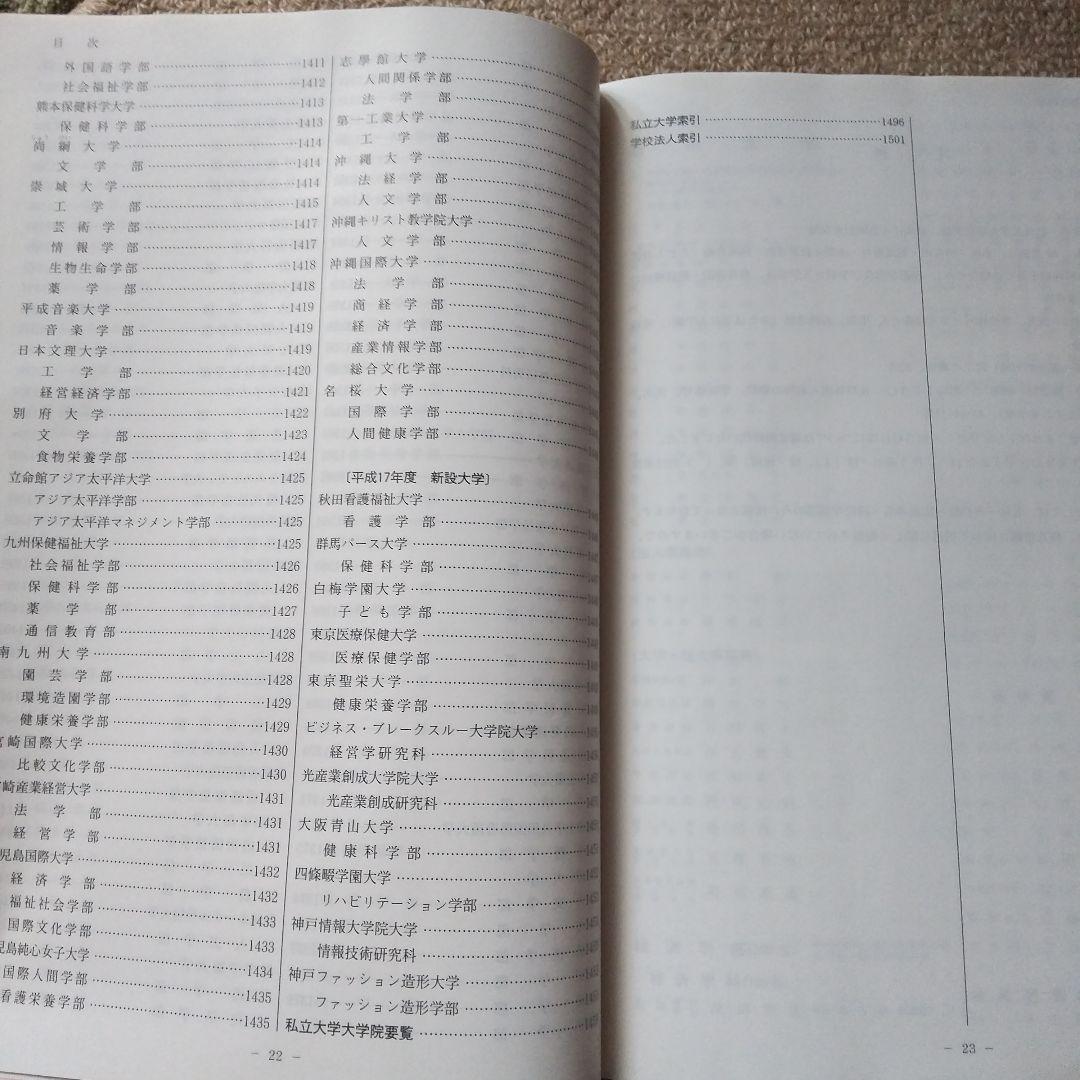 目次
外国語学部……1411
社会福祉学部……1412
熊本保健科学大学……1413
保健科学部……1413
尚絅大学……1414
文学部……1414
崇城大学……1414
工学部……1415
芸術学部……1417
情報学部……1417
生物生命学部……1418
薬学部……1418
平成音楽大学……1419
音楽学部……1419
日本文理大学……1419
工学部……1420
経営経済学部……1421
別府大学……1422
文学部……1423
食物栄養学部……1424
立命館アジア太平洋大学……1425
アジア太平洋学部……1425
アジア太平洋マネジメント学部……1425
九州保健福祉大学……1425
社会福祉学部……1426
保健科学部……1426
薬学部……1427
通信教育部……1428
南九州大学……1428
園芸学部……1428
環境造園学部……1429
健康栄養学部……1429
宮崎国際大学……1430
比較文化学部……1430
崎産業経営大学……1431
法学部……1431
経営学部……1431
児島国際大学……1432
経済学部……1432
福祉社会学部……1433
国際文化学部……1433
児島純心女子大学……1434
国際人間学部……1435
看護栄養学部……1435
志學館大学……
人間関係学部……
法学部……
第一工業大学……
工学部……
沖縄大学……
法経学部……
人文学部……
沖縄キリスト教学院大学……
人文学部……
沖縄国際大学……
法学部……
商経学部……
経済学部……
産業情報学部……
総合文化学部……
名桜大学……
国際学部……
人間健康学部……
〔平成17年度 新設大学〕
秋田看護福祉大学……
看護学部……
群馬パース大学……
保健科学部……
白梅学園大学……
子ども学部……
東京医療保健大学……
医療保健学部……
東京聖栄大学……
健康栄養学部……
ビジネス・ブレークスルー大学院大学……
経営学研究科……
光産業創成大学院大学……
光産業創成研究科……
大阪青山大学……
健康科学部……
四條畷学園大学……
リハビリテーション学部……
神戸情報大学院大学……
情報技術研究科……
神戸ファッション造形大学……
ファッション造形学部……
私立大学大学院要覧……
－ 22 －
私立大学索引……1496
学校法人索引……1501
－ 23 －